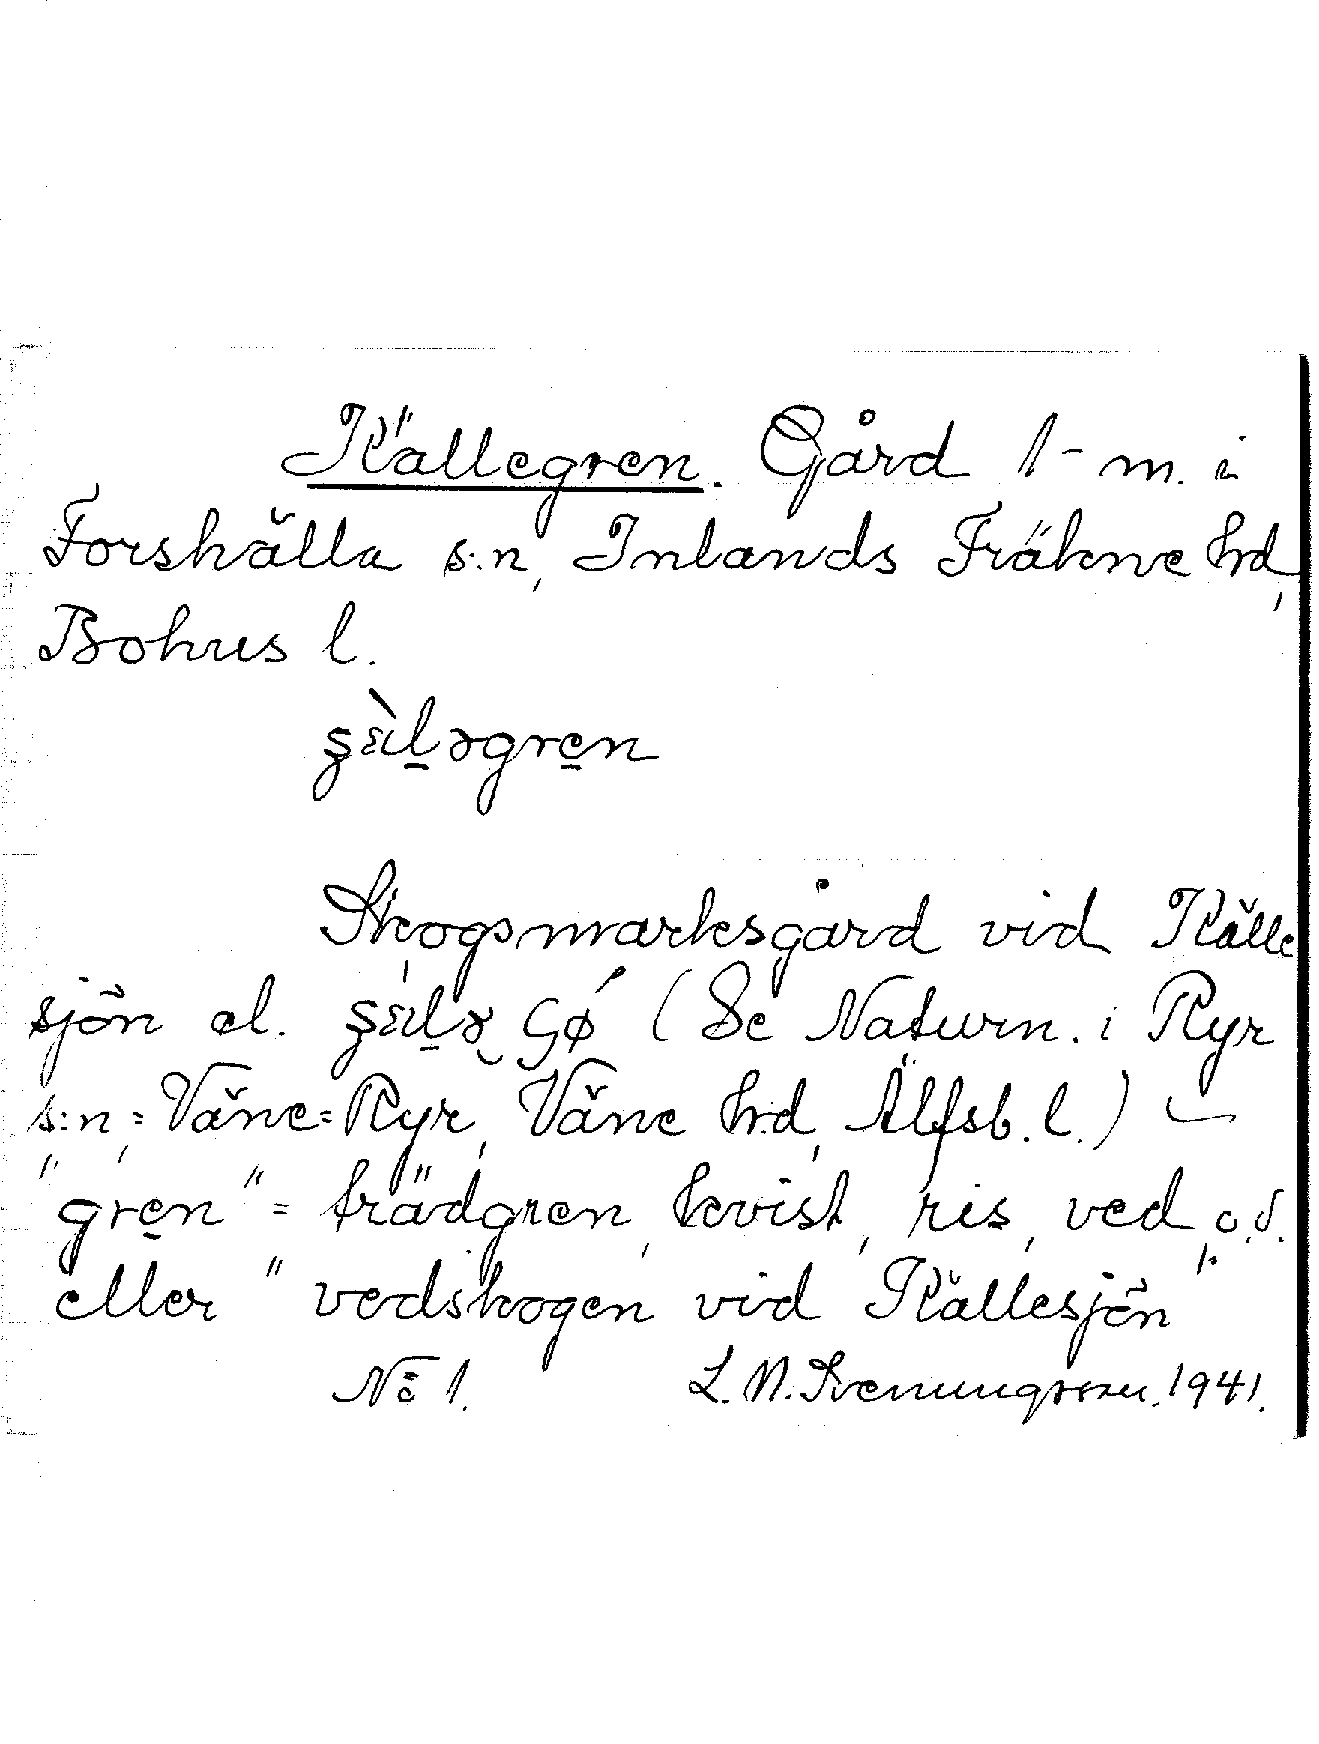 Källegren. Gård 1- m. i
Forshälla s:n, Inlands Fräkne hrd,
Bohus l.
Skogsmarksgård vid Källe
sjön el. (Se Naturn. i Ryr
s:n, = Väne=Ryr, Väne hrd, Älfsb. l.) —
"gren" = trädgren, kvist, ris, ved, o.d.
eller "vedskogen vid Källesjön".
No 1. L. N. Svenungsson. 1941.